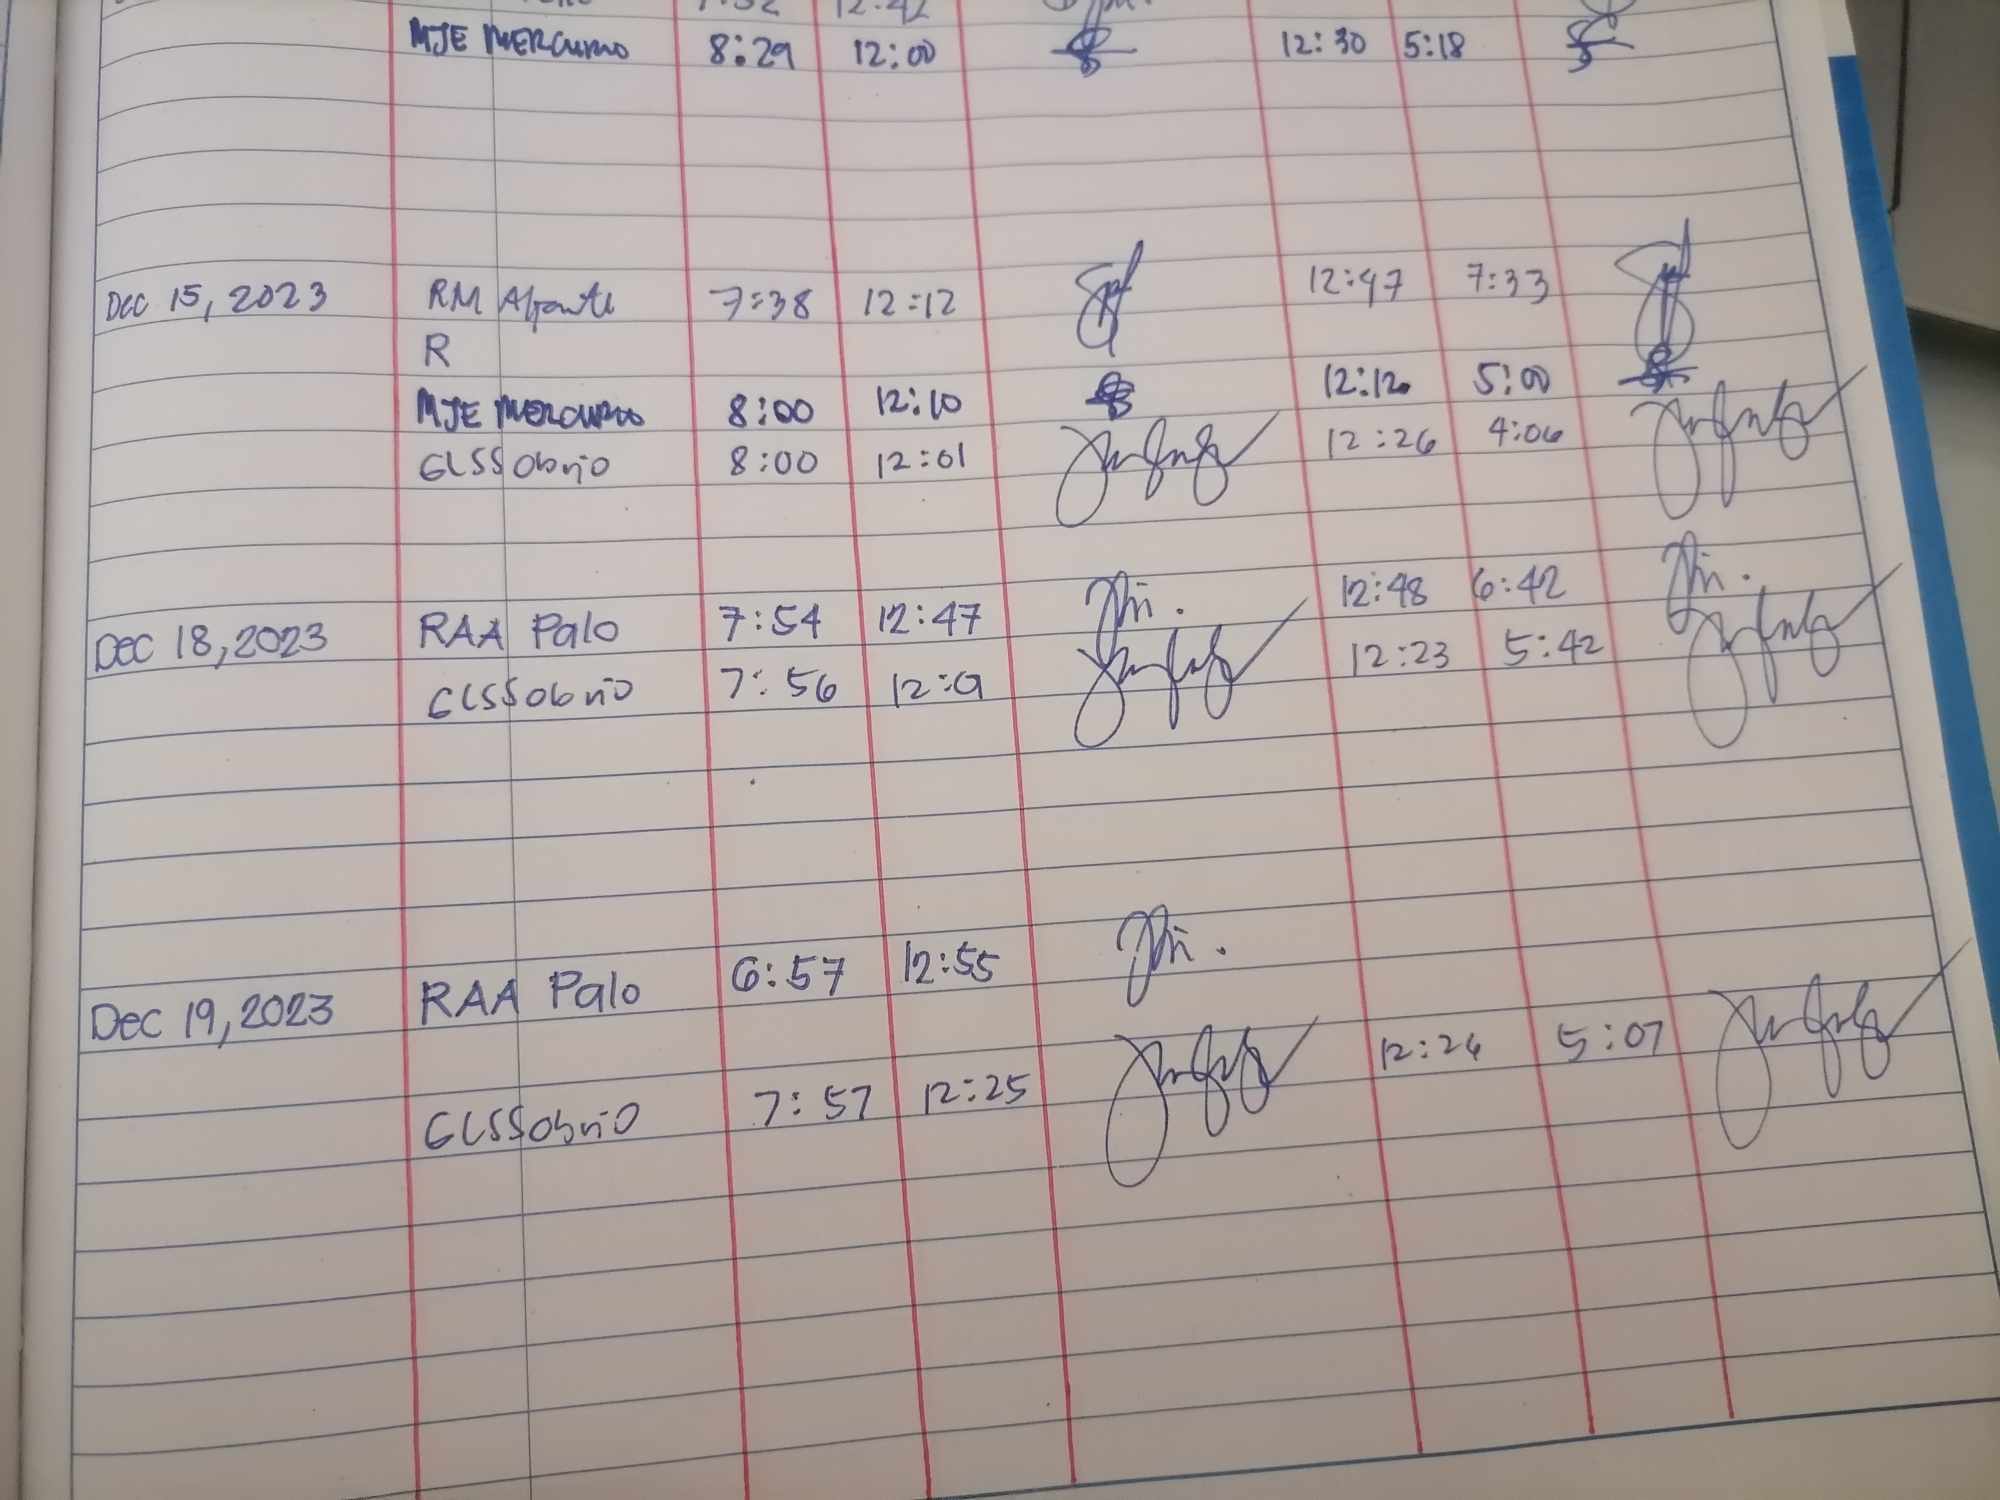 MJE MERCURIO 8:29 12:00 12:30 5:18
Dec 15, 2023 RM 7:38 12:12 12:47 7:33
R
MJE MERCURIO 8:00 12:10 12:12 5:00
GLSSobrio 8:00 12:01 12:26 4:06
Dec 18, 2023 RAA Palo 7:54 12:47 12:48 6:42
GLSSobrio 7:56 12:23 5:42
Dec 19, 2023 RAA Palo 6:57 12:55
GLSSobrio 7:57 12:25 12:26 5:07